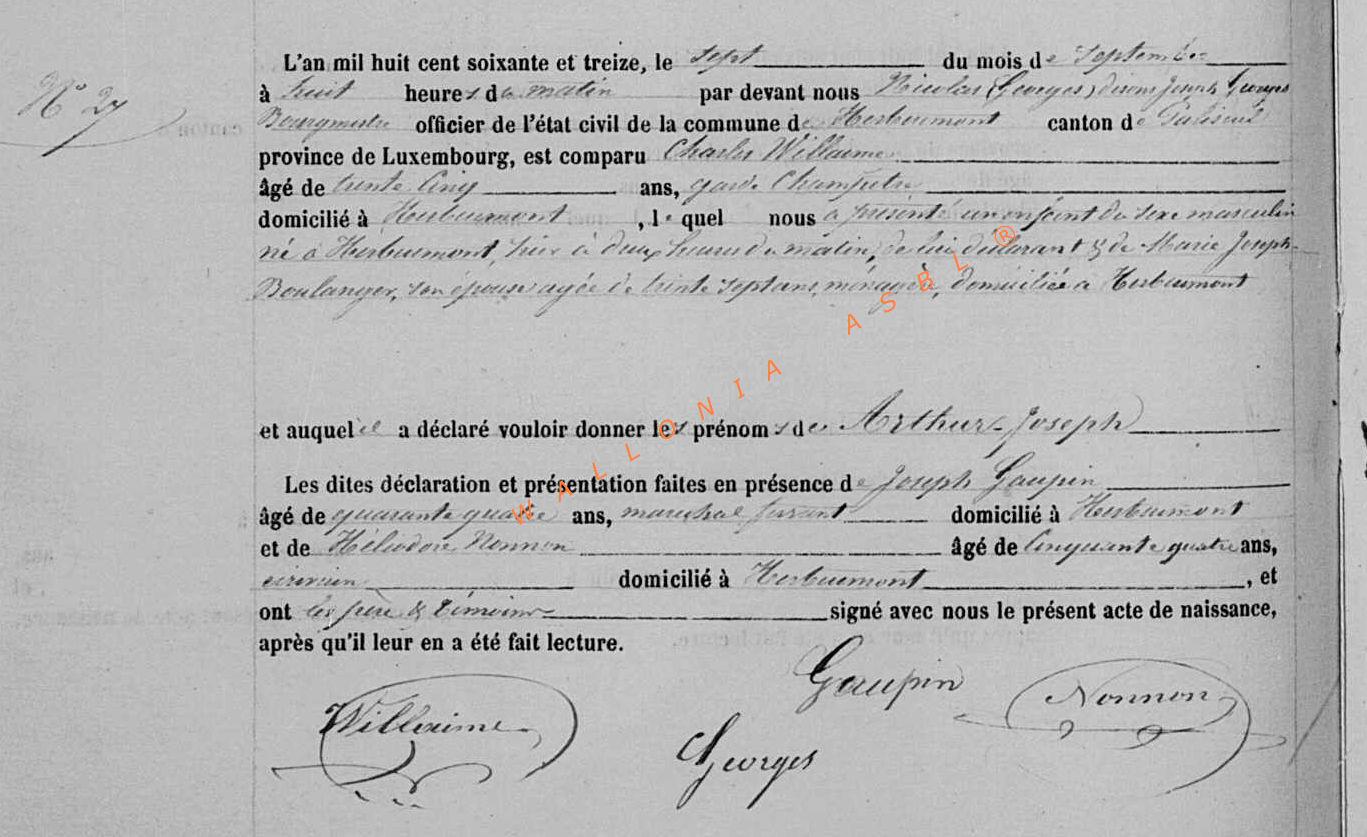 N° 27
L'an mil huit cent soixante et treize, le sept du mois de septembre
à huit heures du matin par devant nous Nicolas (Georges) Joseph Georges
Bourgmestre officier de l'état civil de la commune de Herbeumont canton de Paliseul
province de Luxembourg, est comparu Charles Willaime
âgé de trente cinq ans, garde Champêtre
domicilié à Herbeumont, le quel nous a présenté un enfant du sexe masculin
né à Herbeumont, hier à deux heures du matin, de lui déclarant & de Marie Joseph
Boulanger, son épouse agée de trente sept ans, ménagère, domiciliée à Herbeumont
et auquel il a déclaré vouloir donner les prénoms de Arthur Joseph
Les dites déclaration et présentation faites en présence de Joseph Gaupin
âgé de quarante quatre ans, maréchal ferrant domicilié à Herbeumont
et de Héliodore Nonnon âgé de Cinquante quatre ans,
domicilié à Herbeumont, et
ont les père & témoins signé avec nous le présent acte de naissance,
après qu'il leur en a été fait lecture.
Gaupin
Nonnon
Willaime
Georges
WALLONIA ASBL ®